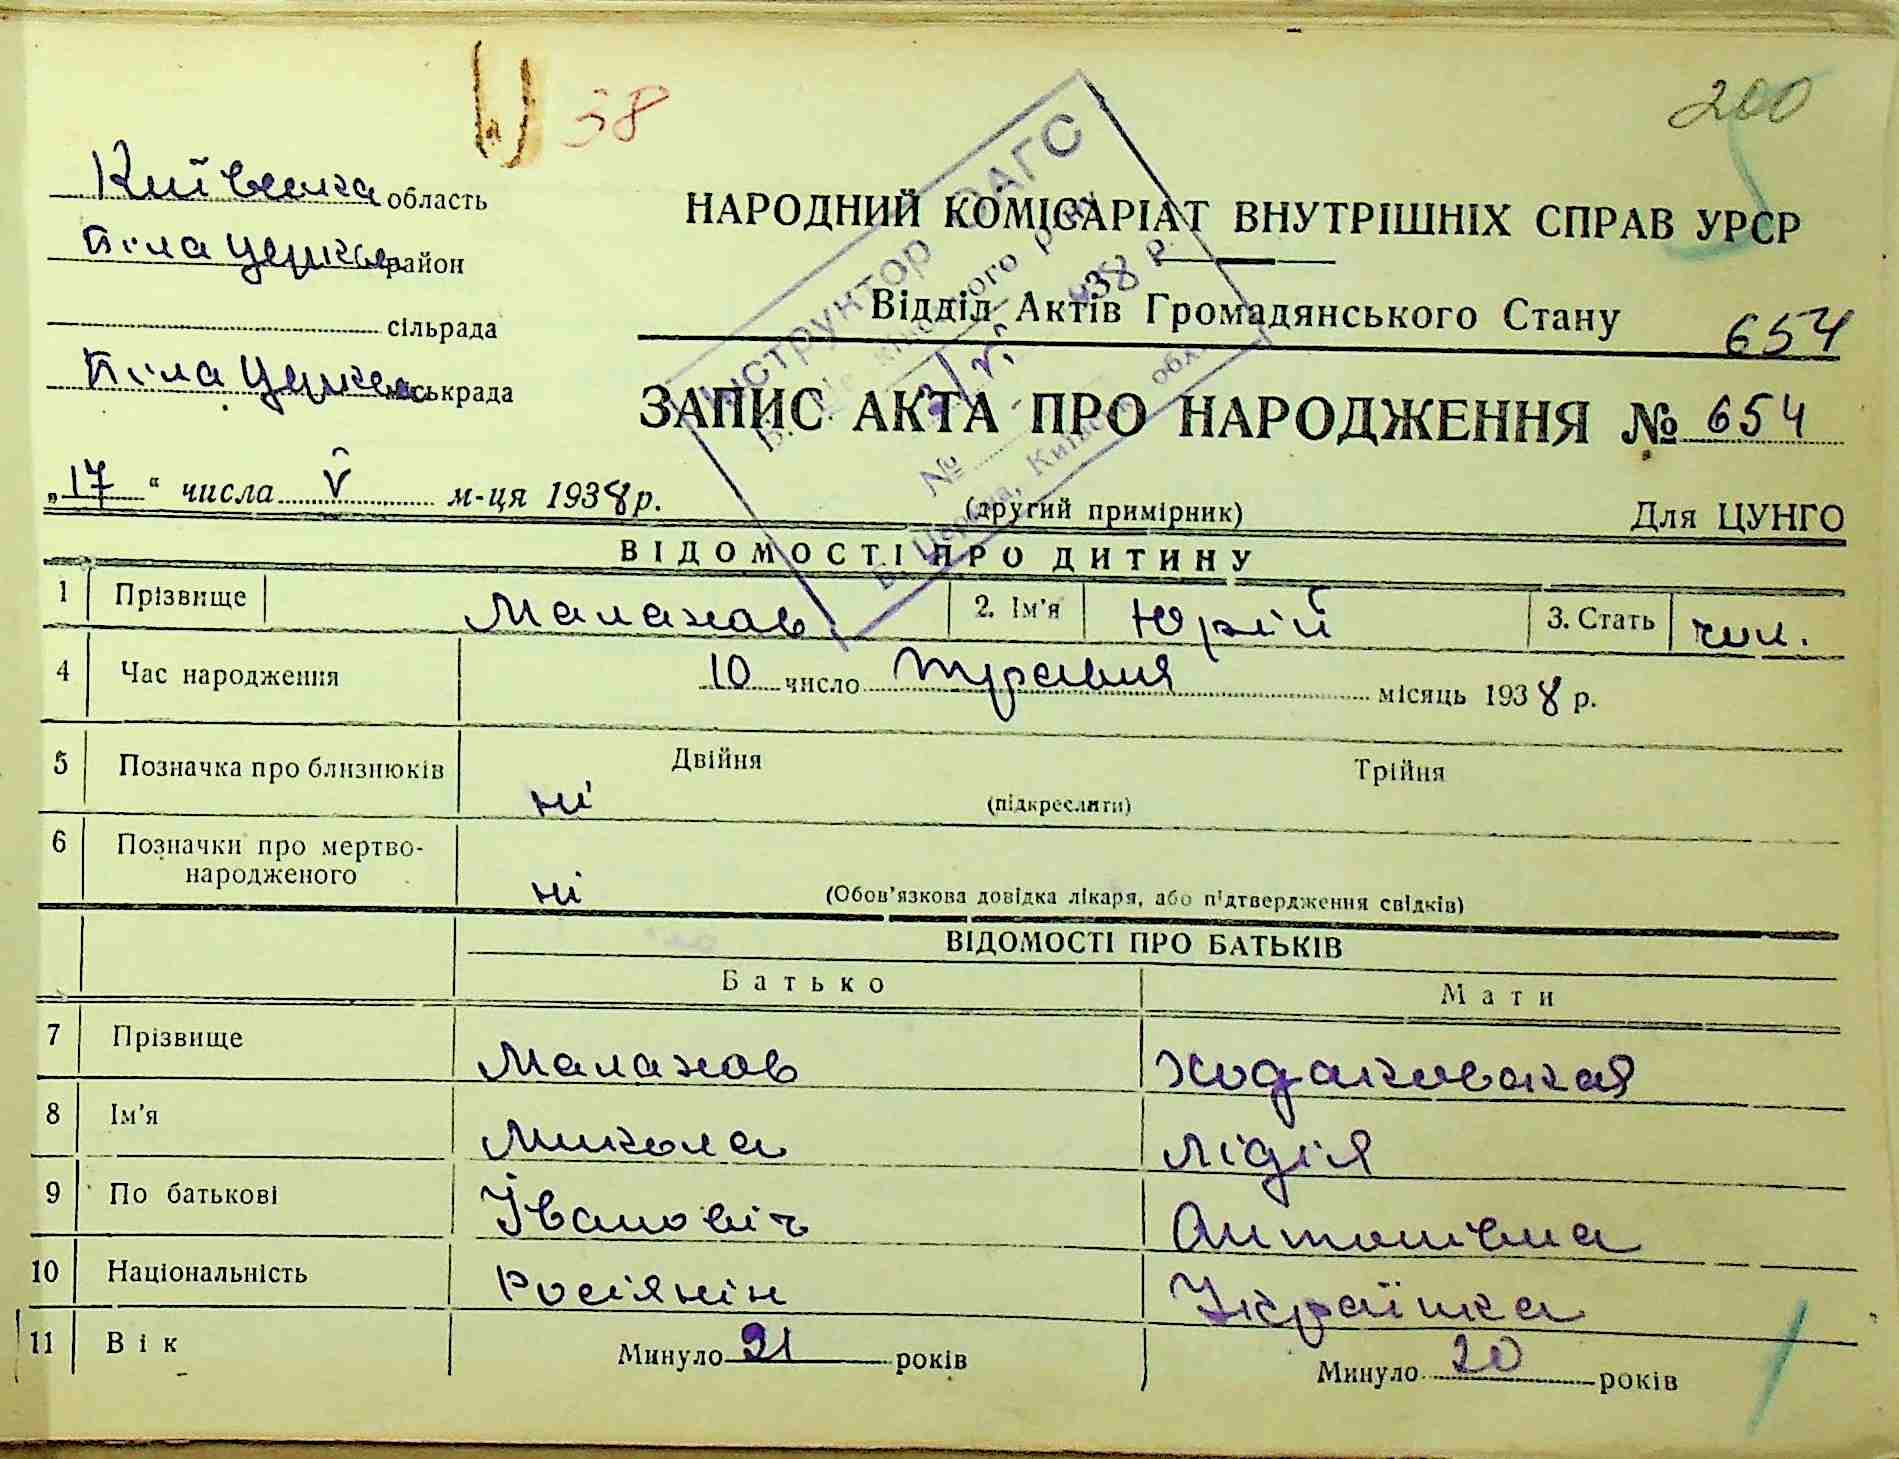 38
200
Київська область
Біла Церква район
сільрада
Біла Церква міськрада
НАРОДНИЙ КОМІСАРІАТ ВНУТРІШНІХ СПРАВ УРСР
Відділ Актів Громадянського Стану
654
ЗАПИС АКТА ПРО НАРОДЖЕННЯ № 654
Інструктор ОАГС
№
38 р.
„17“ числа V м-ця 1938 р.
(другий примірник)
Для ЦУНГО
ВІДОМОСТІ ПРО ДИТИНУ
1 Прізвище Малахов 2. Ім'я Юрій 3. Стать чол.
4 Час народження 10 число травня місяць 1938 р.
5 Позначка про близнюків ні Двійня Трійня
(підкреслити)
6 Позначки про мертво-
народженого ні (Обов'язкова довідка лікаря, або підтвердження свідків)
ВІДОМОСТІ ПРО БАТЬКІВ
Батько Мати
7 Прізвище Малахов Ходаковская
8 Ім'я Микола Лідія
9 По батькові Івановіч Антонівна
10 Національність Росіянін Українка
11 Вік Минуло 21 років Минуло 20 років